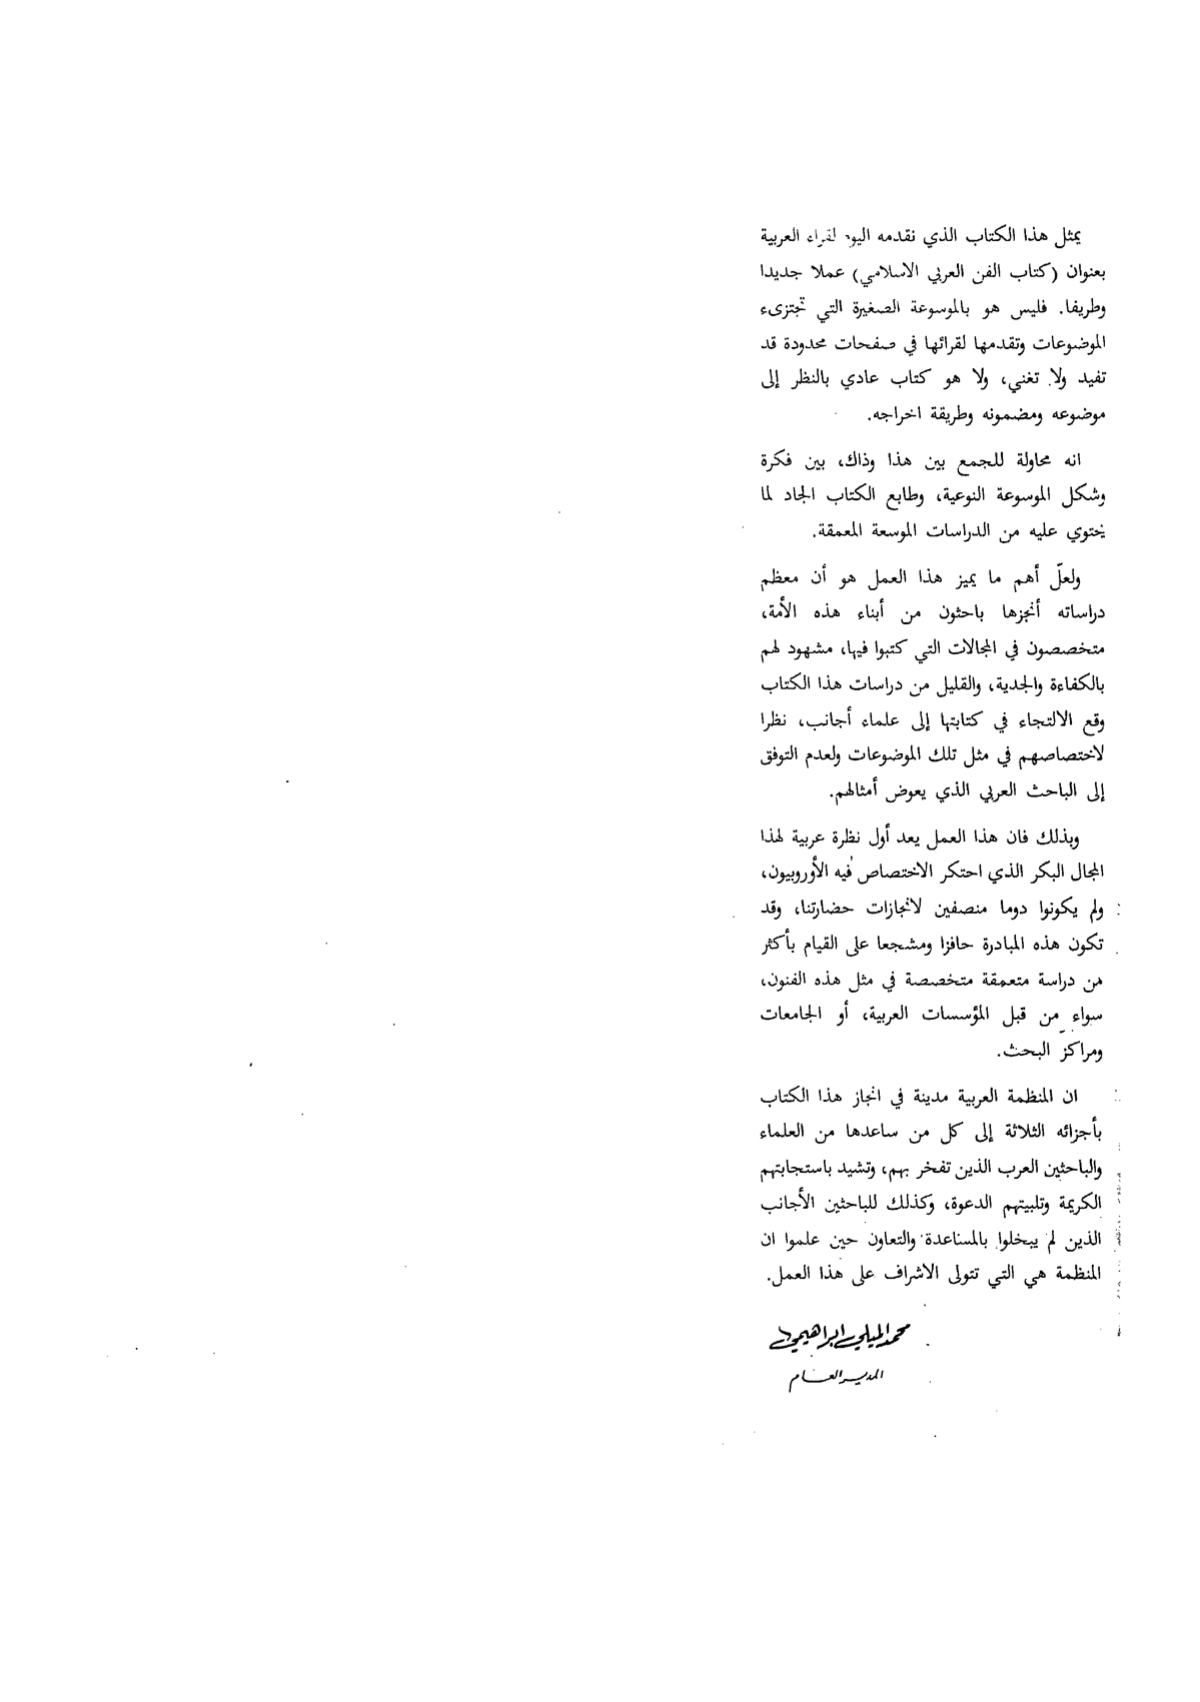 يمثل هذا الكتاب الذي نقدمه اليوم لقراء العربية
بعنوان (كتاب الفن العربي الاسلامي) عملا جديدا
وطريفا. فليس هو بالموسوعة الصغيرة التي تجتزىء
الموضوعات وتقدمها لقرائها في صفحات محدودة قد
تفيد ولا تغني، ولا هو كتاب عادي بالنظر إلى
موضوعه ومضمونه وطريقة اخراجه.
انه محاولة للجمع بين هذا وذاك، بين فكرة
وشكل الموسوعة النوعية، وطابع الكتاب الجاد لما
يحتوي عليه من الدراسات الموسعة المعمقة.
ولعلّ أهم ما يميز هذا العمل هو أن معظم
دراساته أنجزها باحثون من أبناء هذه الأمة،
متخصصون في المجالات التي كتبوا فيها، مشهود لهم
بالكفاءة والجدية، والقليل من دراسات هذا الكتاب
وقع الالتجاء في كتابتها إلى علماء أجانب، نظرا
لاختصاصهم في مثل تلك الموضوعات ولعدم التوفق
إلى الباحث العربي الذي يعوض أمثالهم.
وبذلك فان هذا العمل يعد أول نظرة عربية لهذا
المجال البكر الذي احتكر الاختصاص فيه الأوروبيون،
ولم يكونوا دوما منصفين لانجازات حضارتنا، وقد
تكون هذه المبادرة حافزا ومشجعا على القيام بأكثر
من دراسة متعمقة متخصصة في مثل هذه الفنون،
سواء من قبل المؤسسات العربية، أو الجامعات
ومراكز البحث.
ان المنظمة العربية مدينة في انجاز هذا الكتاب
بأجزائه الثلاثة إلى كل من ساعدها من العلماء
والباحثين العرب الذين تفخر بهم، وتشيد باستجابتهم
الكريمة وتلبيتهم الدعوة، وكذلك للباحثين الأجانب
الذين لم يبخلوا بالمساعدة والتعاون حين علموا ان
المنظمة هي التي تتولى الاشراف على هذا العمل.
محمد الميلي ابراهيمي
المدير العام